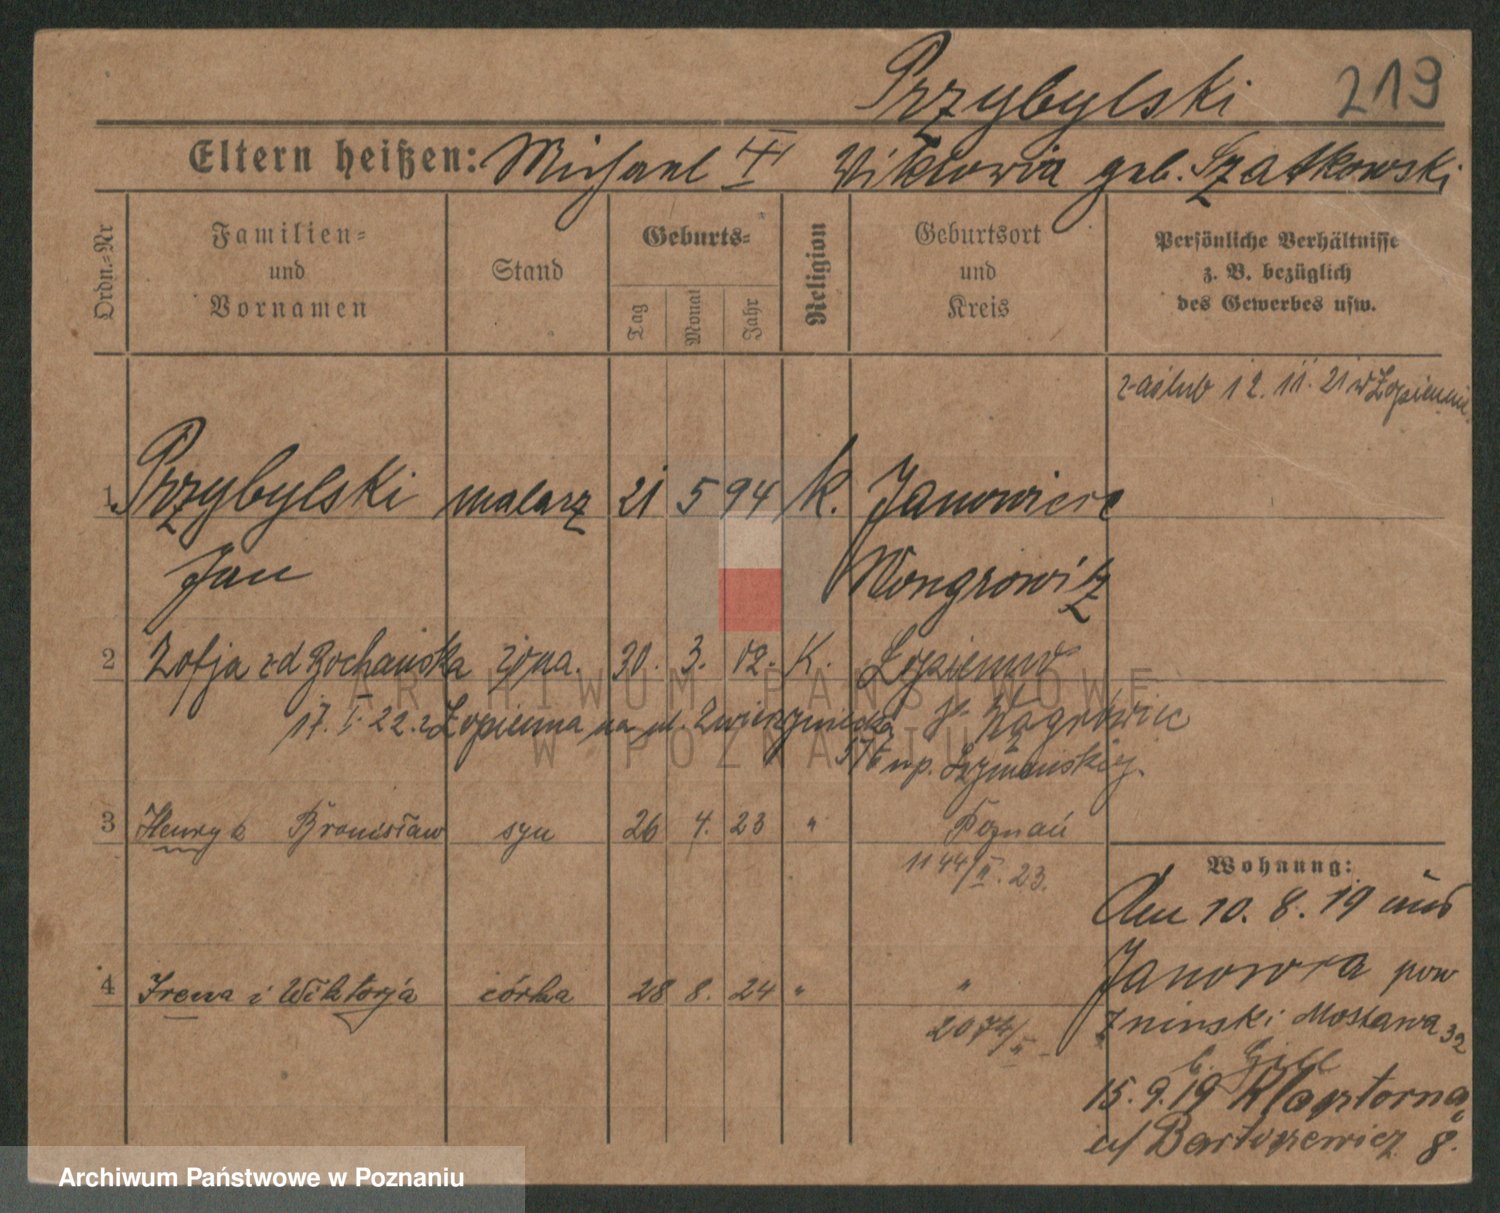 Przybylski 219
Eltern heißen: Michael Viktoria geb. Szatkowski
Ordn.-Nr
Familien- und Vornamen
Stand
Geburts-
Tag
Monat
Jahr
Religion
Geburtsort und Kreis
Persönliche Verhältnisse
z. B. bezüglich
des Gewerbes usw.
zaślub 12. 11. 21 w Łopiennie
1 Przybylski malarz 21 5 94 k. Janowiec
Jan Wongrowitz
2 Zofja zd Bochańska żona. 30. 3. 02. K. Łopienno
17. I. 22. z Łopienna na ul. Zwierzyniecką
p. Wągrowiec
np. Szymańskiej.
3 Henryk Bronisław syn 26 4. 23 " Poznań
1144/II. 23.
4 Irena i Wiktorja córka 28 8. 24 " "
2074/II
Wohnung:
Den 10. 8. 19 aus
Janowca pow
Zninski Mostawa 32
15. 9. 19 Klasztorna
u/ Bartoszewicz 8.
ARCHIWUM PAŃSTWOWE
W POZNANIU
Archiwum Państwowe w Poznaniu